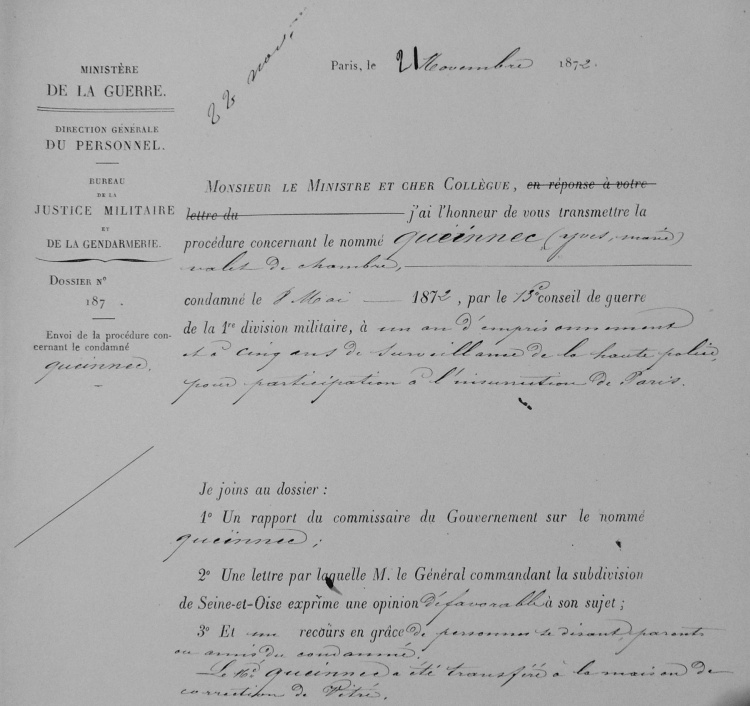 22 nov.
Paris, le 21 Novembre 1872.
MINISTÈRE
DE LA GUERRE.
DIRECTION GÉNÉRALE
DU PERSONNEL.
BUREAU
DE LA
JUSTICE MILITAIRE
ET
DE LA GENDARMERIE.
DOSSIER N°
187 .
Envoi de la procédure con-
cernant le condamné
queinnec.
MONSIEUR LE MINISTRE ET CHER COLLÈGUE, en réponse à votre
lettre du j'ai l'honneur de vous transmettre la
procédure concernant le nommé queinnec (yves, marie)
valet de chambre,
condamné le 8 Mai 1872, par le 13e conseil de guerre
de la 1re division militaire, à un an d'emprisonnement
et à cinq ans de surveillance de la haute police,
pour participation à l'insurrection de Paris.
Je joins au dossier :
1° Un rapport du commissaire du Gouvernement sur le nommé
queinnec ;
2° Une lettre par laquelle M. le Général commandant la subdivision
de Seine-et-Oise exprime une opinion défavorable à son sujet ;
3° Et un recours en grâce de personnes se disant parents
ou amis du condamné.
Le Né queinnec a été transféré à la maison de
correction de Vitré.